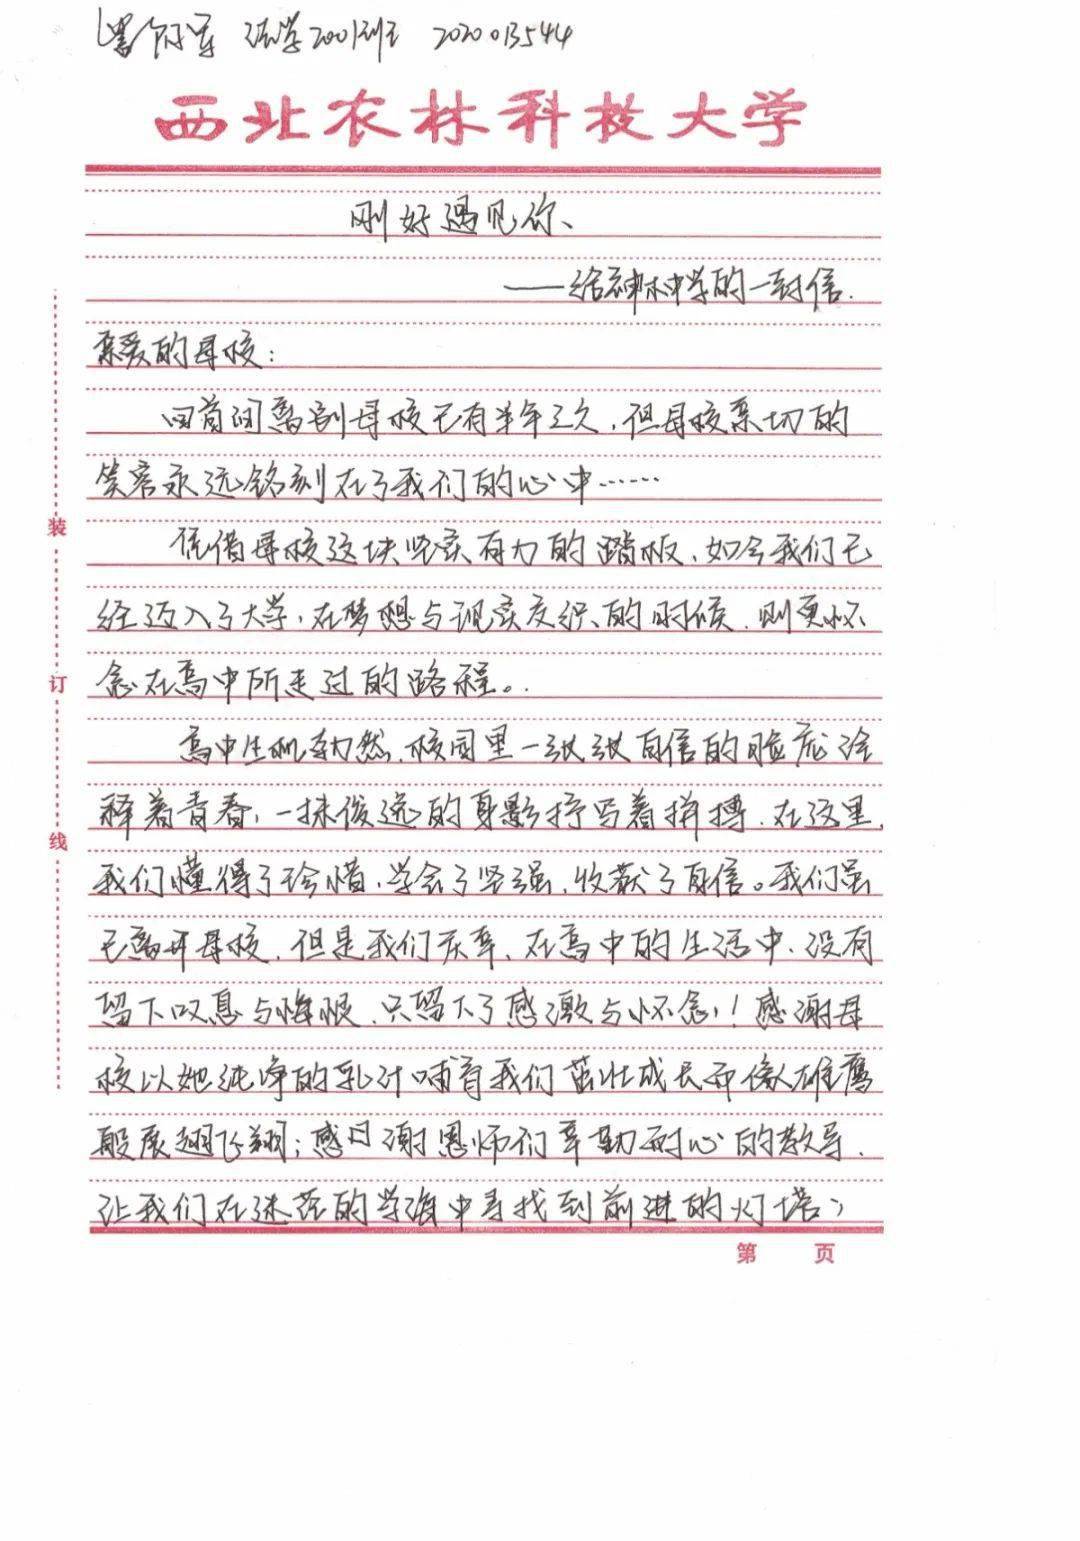 法学2001班 2020013544
西北农林科技大学
刚好遇见你、
——给神木中学的一封信.
亲爱的母校：
回首间离别母校已有半年之久，但母校亲切的
笑容永远铭刻在了我们的心中……
装
凭借母校这块坚实有力的踏板，如今我们已
经迈入了大学，在梦想与现实交织的时候，则更怀
订
念在高中所走过的路程。
高中生机勃然，校园里一张张自信的脸庞诠
释着青春，一抹俊逸的身影抒写着拼搏，在这里，
线
我们懂得了珍惜，学会了坚强，收获了自信。我们虽
已离开母校，但是我们庆幸，在高中的生活中，没有
留下叹息与悔恨，只留下了感激与怀念！感谢母
校以她纯净的乳汁哺育我们茁壮成长而像雄鹰
般展翅飞翔；感谢恩师们辛勤耐心的教导，
让我们在迷茫的学海中寻找到前进的灯塔；
第 页